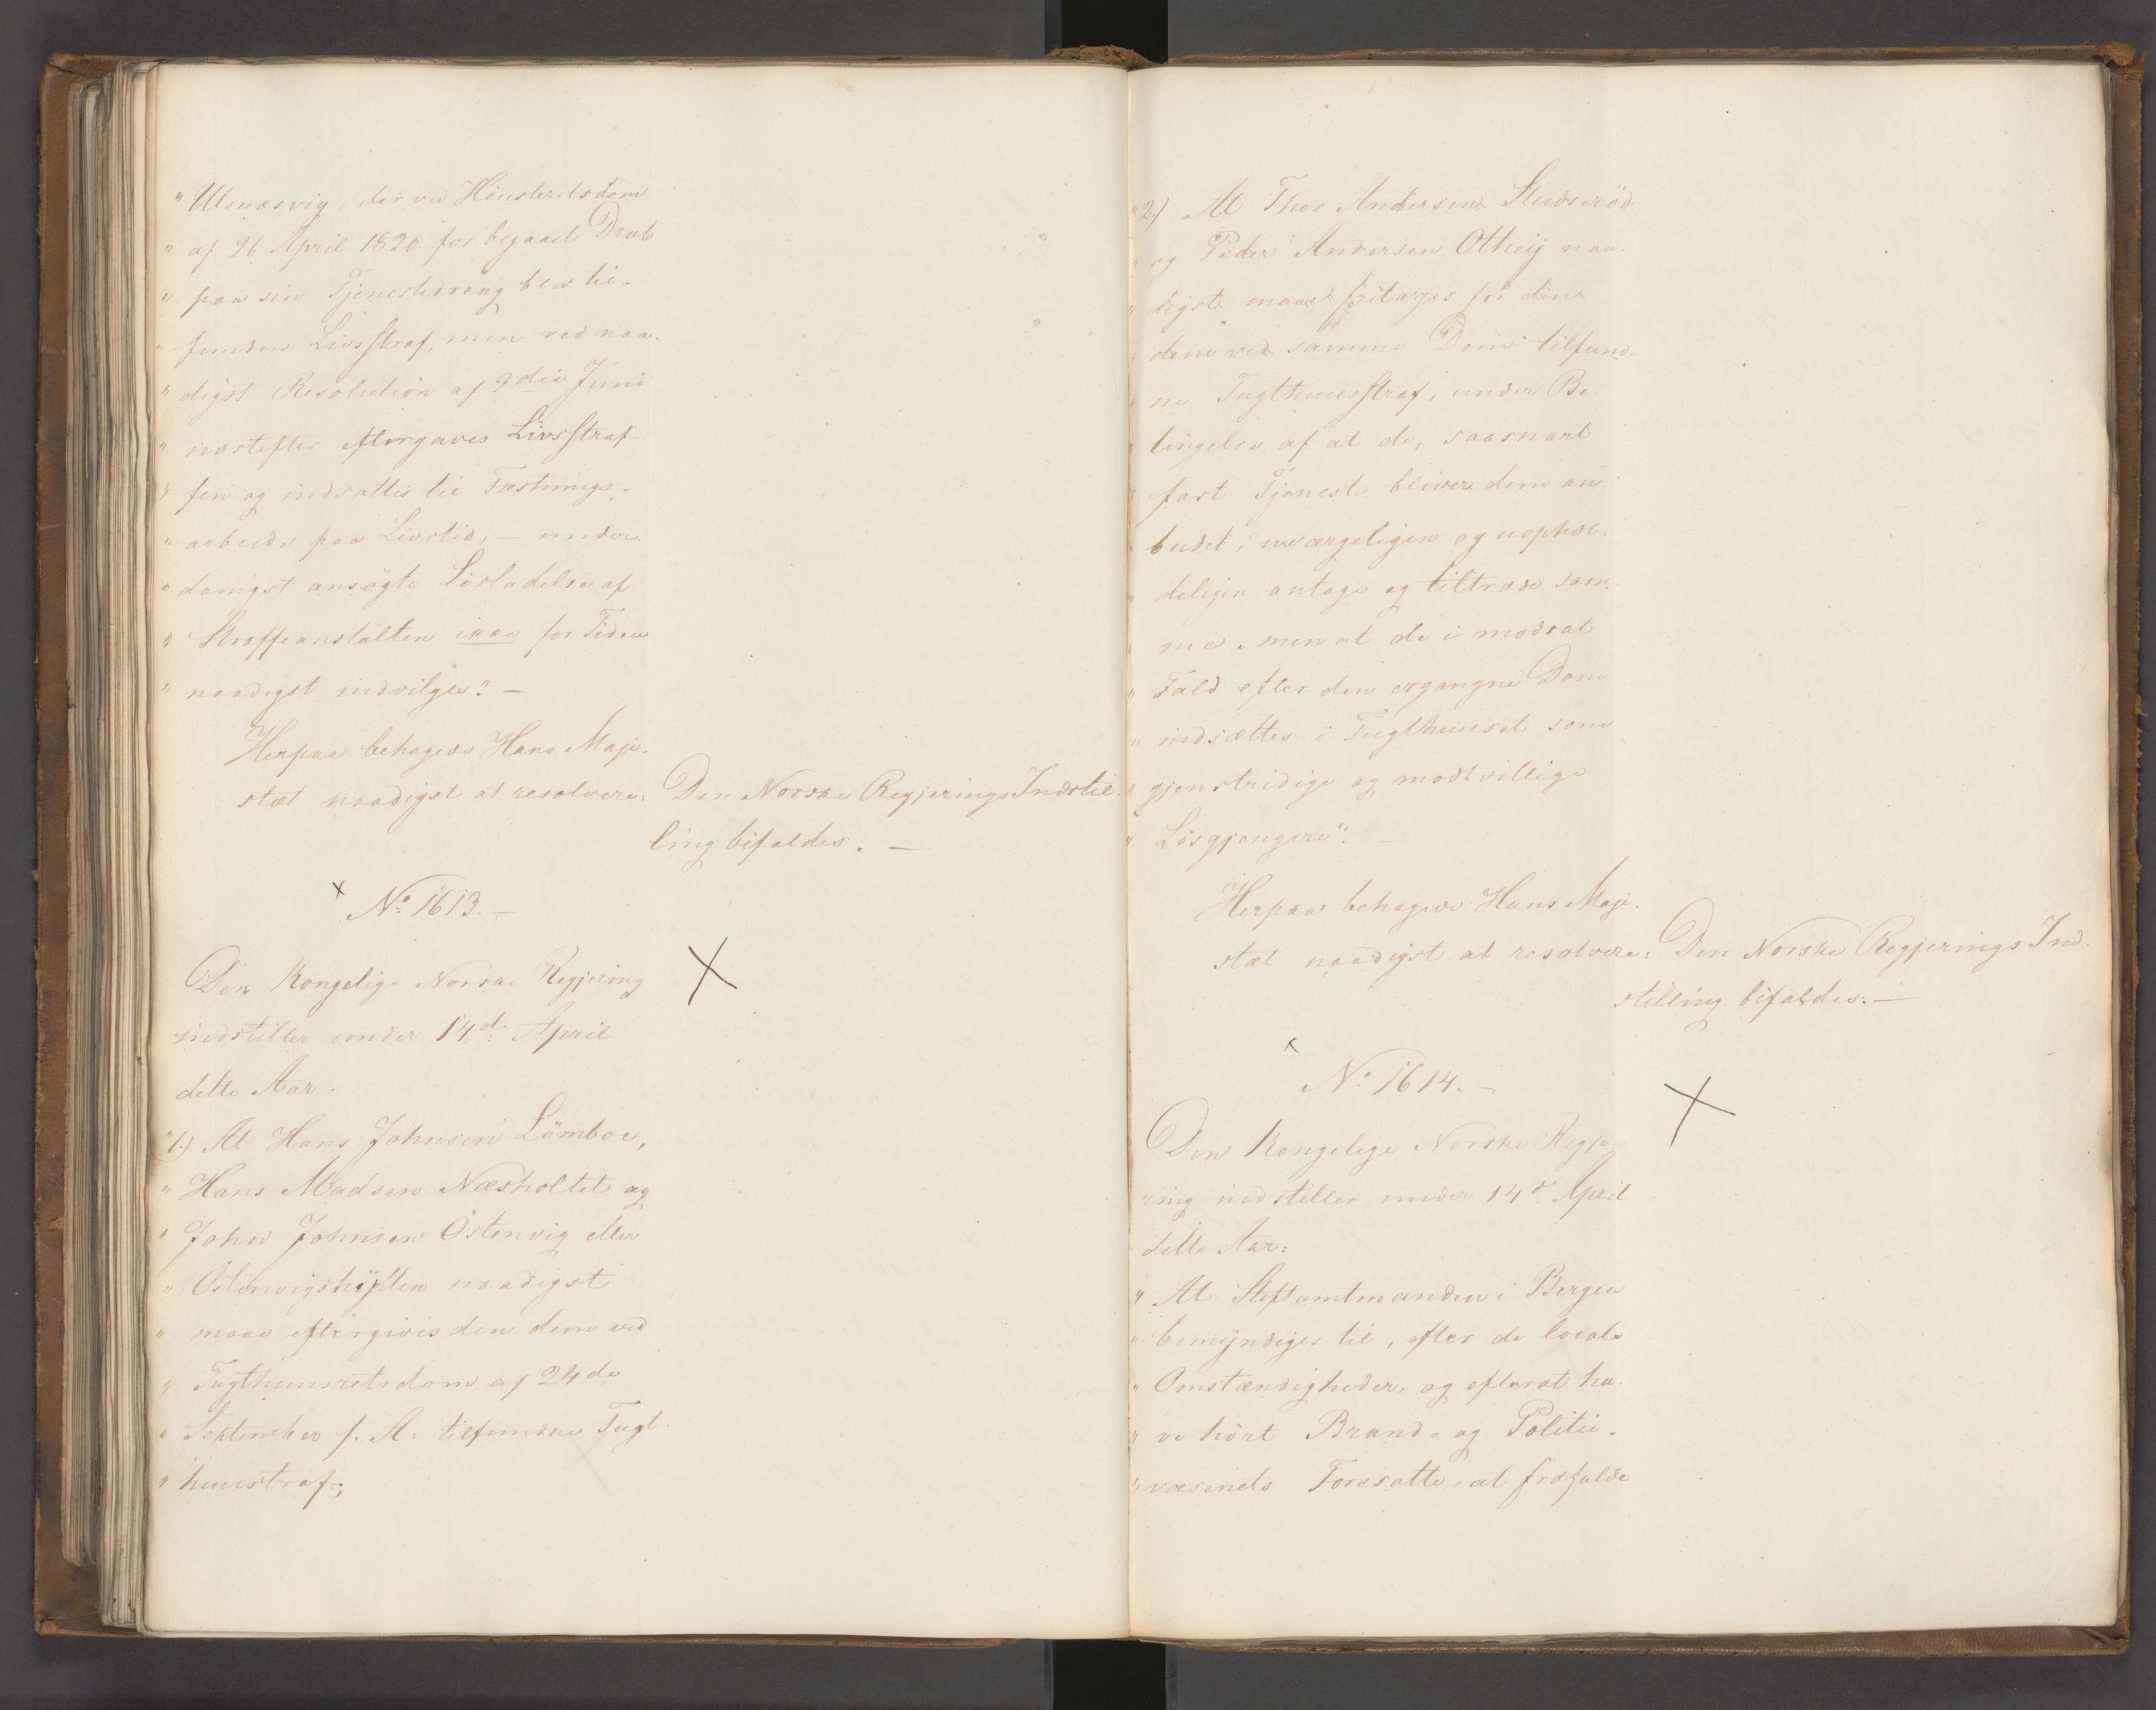 " Ulsnæsvig, der ved Höiesteretsdom
" af 26 April 1820 for begaaet Drab
" paa sin Tjenestedreng blev til-
" funden Livsstraf, men ved naa-
" digst Resolution af 9die Juni
" næstefter eftergaves Livsstraf-
" fen og indsattes til Fæstnings-
" arbeide paa Livstid, – under-
" danigst ansögte Lösladelse af
" Straffeanstalten ikke for Tiden
" naadigst indvilges." –
Herpaa behagede Hans Maje-
stæt naadigst at resolvere: Den Norske Regjerings Indstil-
ling bifaldes. –
x No 1613. –
Den Kongelige Norske Regjering
indstiller under 14de April
dette Aar.
" 1.) At Hans Johnsen Lömboe,
" Hans Madsen Næsholtet og
" John Johnsen Östenvig eller
" Östenvigshÿtten naadigst
" maae eftergives den dem ved
" Tugthuusretsdom af 24de
" September f. A. tilfundne Tugt-
" huusstraf;
" 2) At Thor Andersen Studseröd
" og Peder Andersen Otteij naa-
" digst maae fritages for den
" dem ved samme Dom tilfund-
" ne Tugthuusstraf, under Be-
" tingelse af at de, saasnart
" fast Tjeneste bliver dem an-
" budet, uværgeligen og uophol-
" deligen antage og tiltræde sam-
" me, men at de i modsat
" Fald efter den ergangne Dom
" indsættes i Tugthuuset som
" gjenstridige og modvillige
" Lösgjængere". –
Herpaa behagede Hans Maje-
stæt naadigst at resolvere: Den Norske Regjerings Ind-
stilling bifaldes. –
x No 1614. –
Den Kongelige Norske Regje-
ring indstiller under 14de April
dette Aar:
" At Stiftamtmanden i Bergen
" bemÿndiges til, efter de locale
" Omstændigheder, og efterat ha-
" ve hört Brand- og Politie-
" væsenets Foresatte, at frafalde